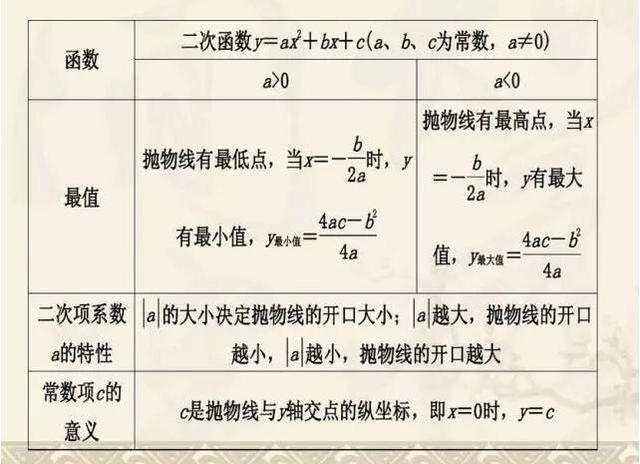 函数
二次函数y=ax²+bx+c(a、b、c为常数，a≠0)
a>0
a<0
最值
抛物线有最低点，当x=-b/2a时，y
有最小值，y最小值=4ac-b²/4a
抛物线有最高点，当x
=-b/2a时，y有最大
值，y最大值=4ac-b²/4a
二次项系数
a的特性
|a|的大小决定抛物线的开口大小；|a|越大，抛物线的开口
越小，|a|越小，抛物线的开口越大
常数项c的
意义
c是抛物线与y轴交点的纵坐标，即x=0时，y=c